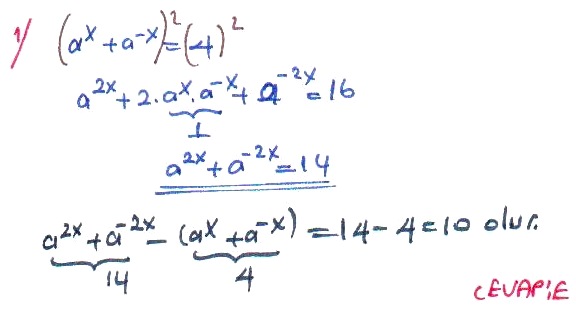 1) (a^x + a^-x)^2 = (4)^2
a^2x + 2.a^x.a^-x + a^-2x = 16
1
a^2x + a^-2x = 14
a^2x + a^-2x - (a^x + a^-x) = 14 - 4 = 10 olur.
14 4
CEVAP:E